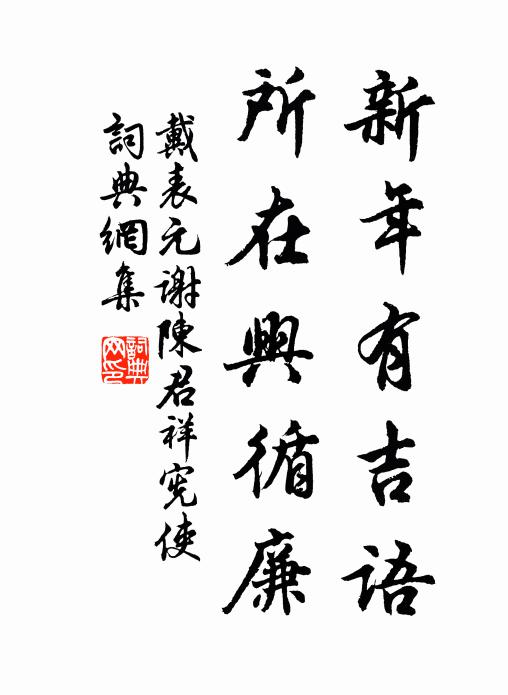 新年有吉语
所在興循廉
戴表元謝陳君祥憲使
詞典網集
詞典网印